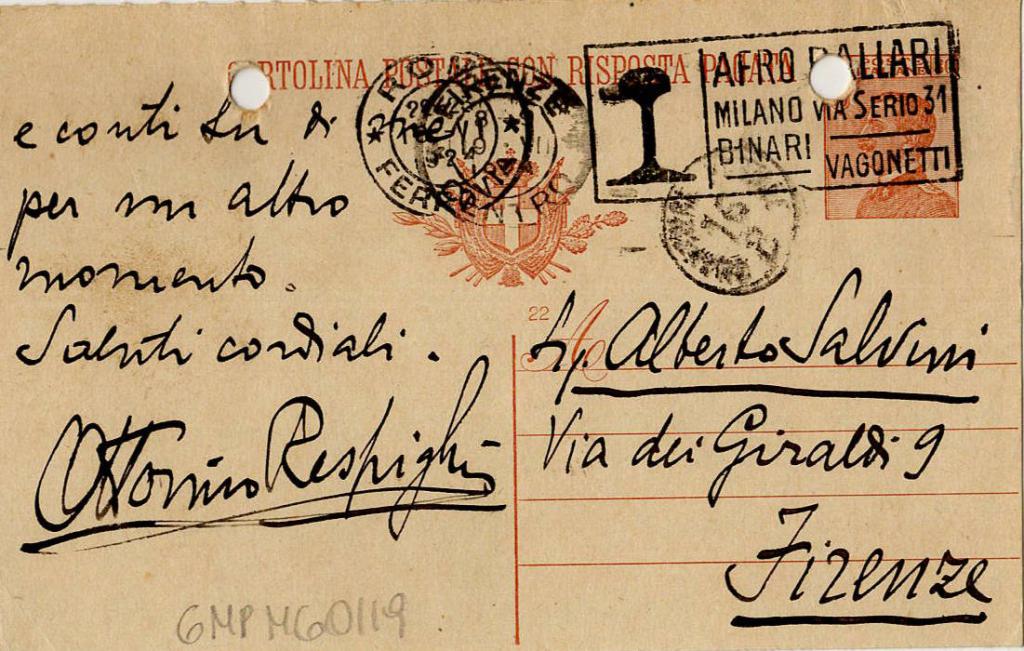 CARTOLINA POSTALE CON RISPOSTA PAGATA
FIRENZE
FERROVIA
AFRO BALLARI
MILANO VIA SERIO 31
BINARI VAGONETTI
e conti su di me
per un altro
momento.
Saluti cordiali.
Ottorino Respighi
22
Sig. Alberto Salvini
Via dei Giraldi 9
Firenze
GMPMG0119